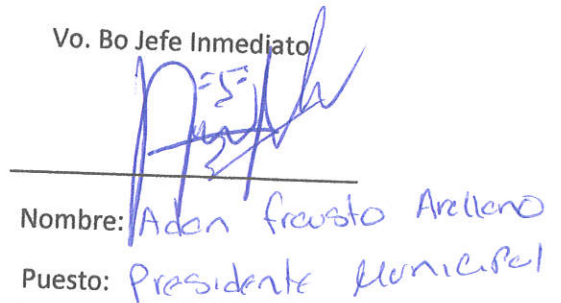 Vo. Bo Jefe Inmediato
Nombre: Adan frausto Arellano
Puesto: Presidente Municipal